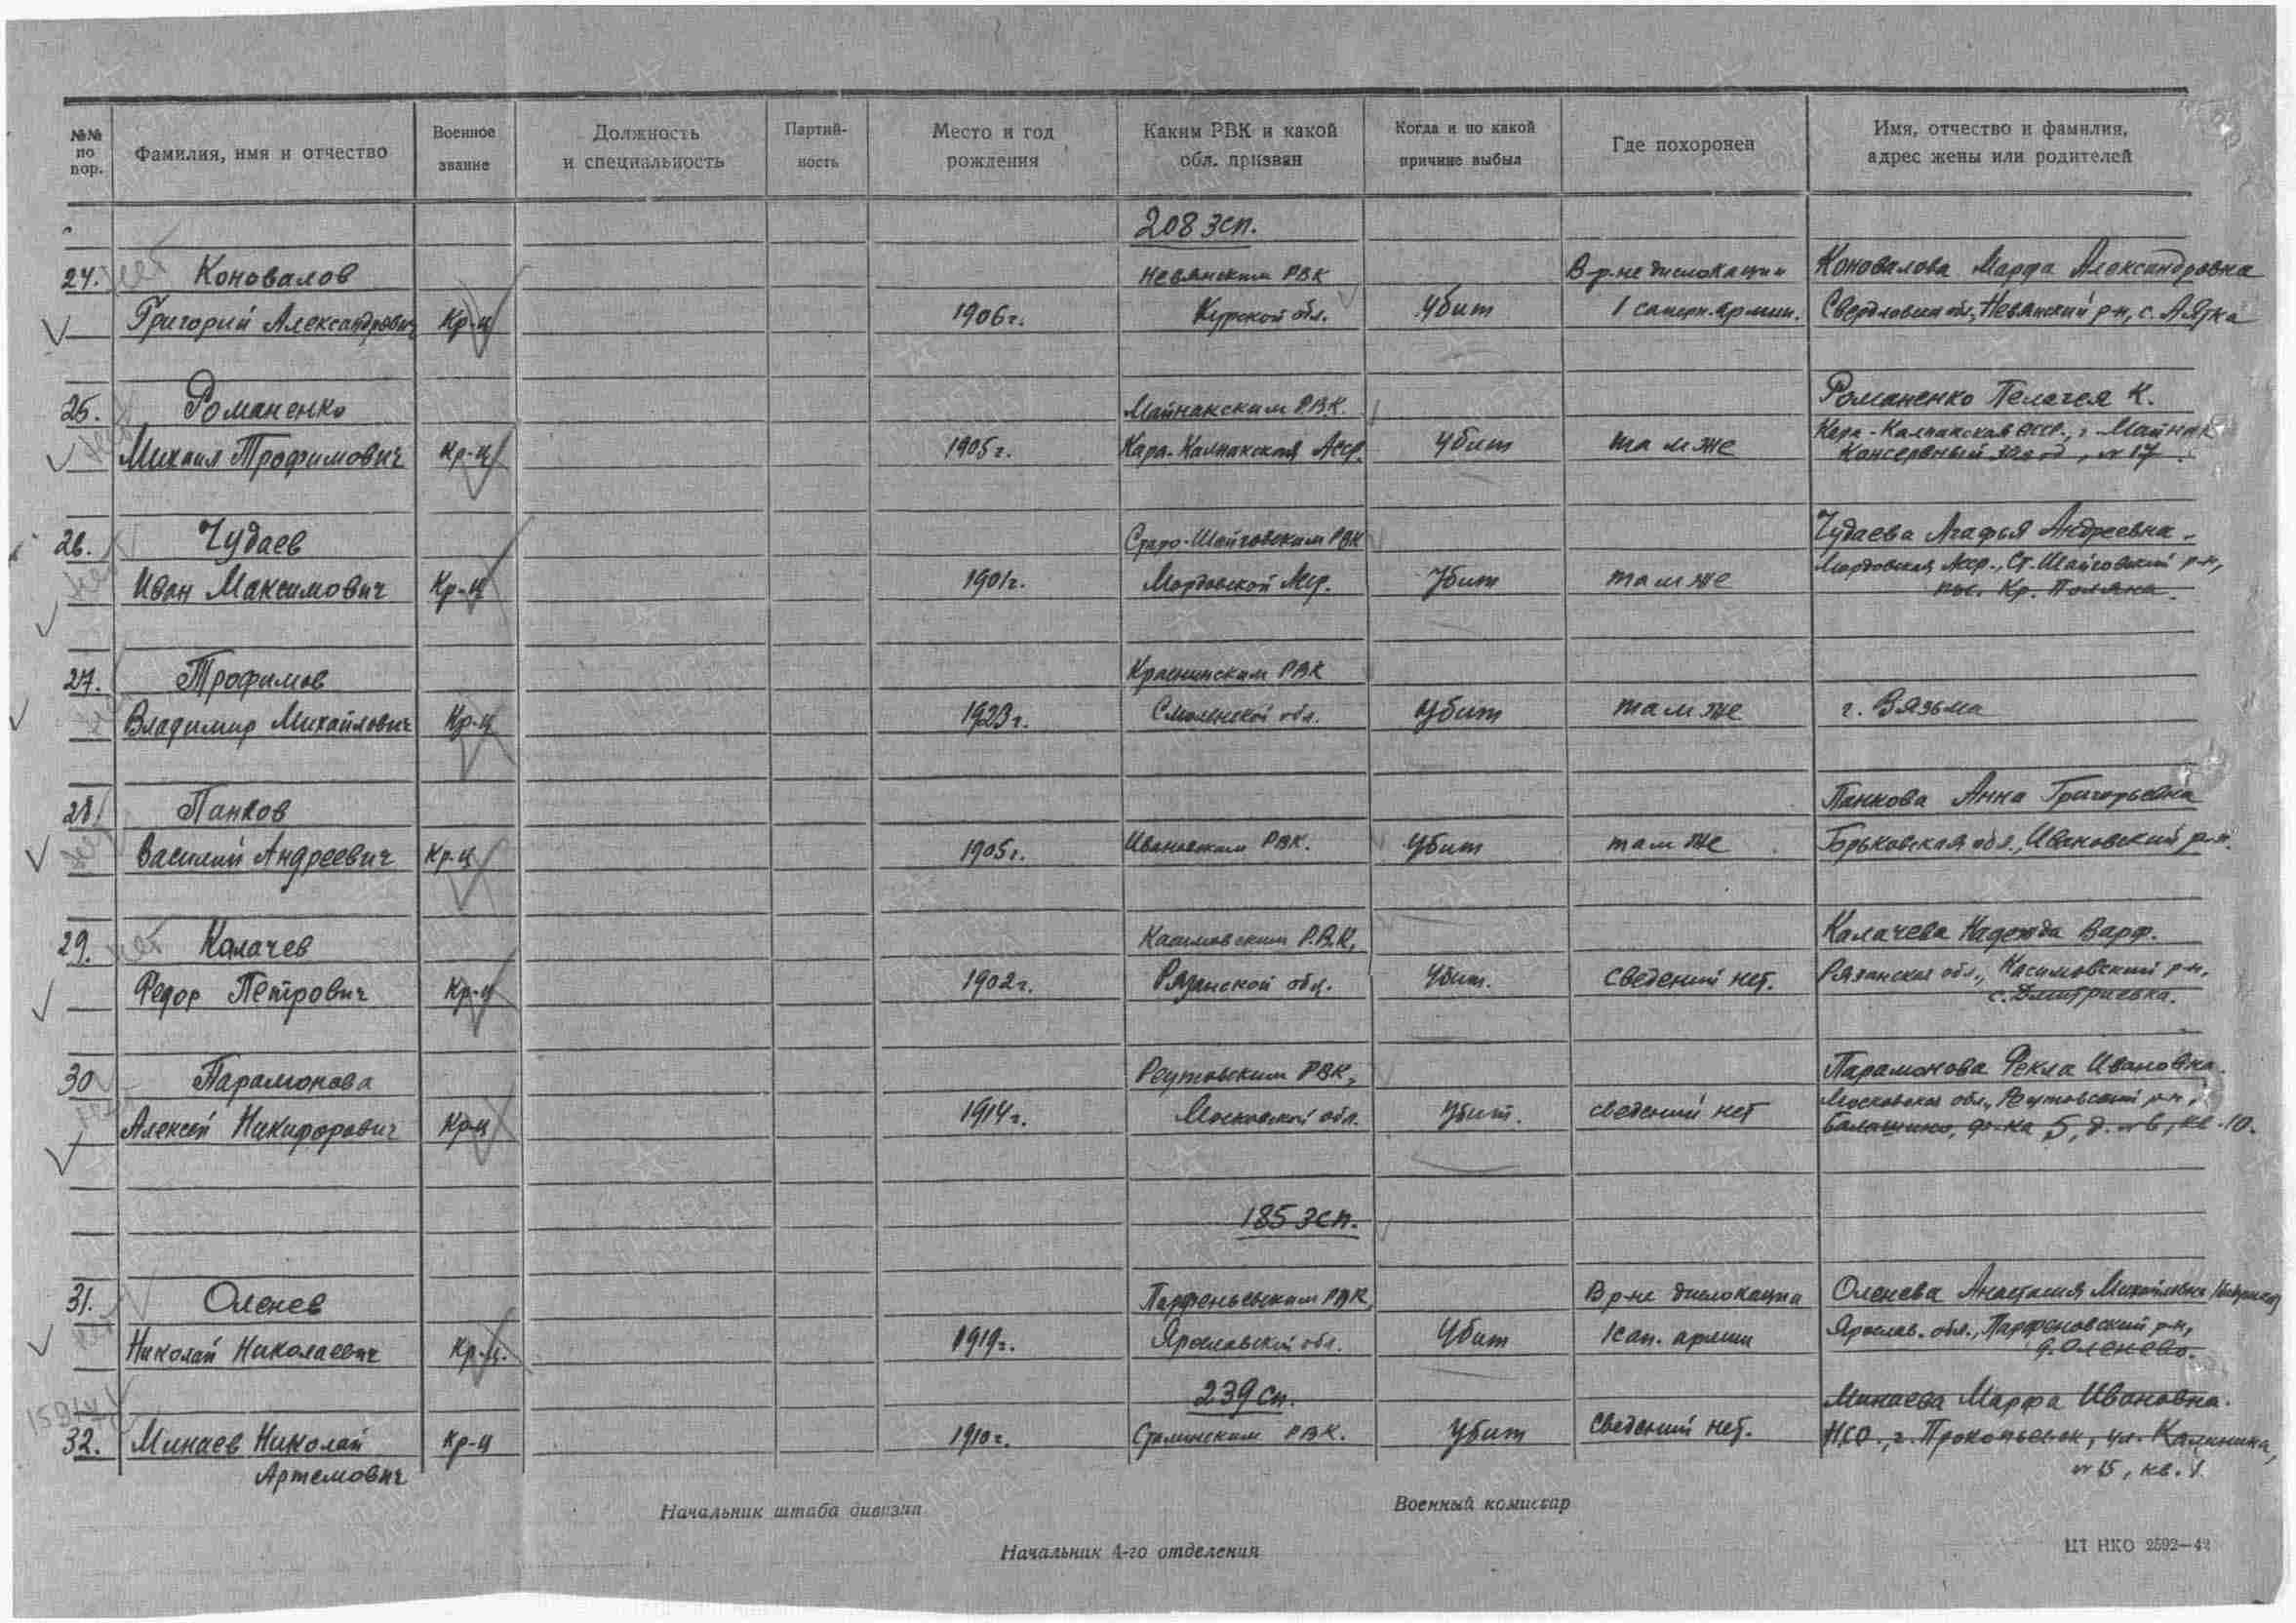 №№ по пор.
Фамилия, имя и отчество
Военное звание
Должность и специальность
Партий-ность
Место и год рождения
Каким РВК и какой обл. призван
Когда и по какой причине выбыл
Где похоронен
Имя, отчество и фамилия, адрес жены или родителей
208 зсп.
24. нет Коновалов Невянским РВК В р-не дислокации Коновалова Марфа Александровна
Григорий Александрович Кр-ц 1906 г. Курской обл. Убит 1 саперн. армии. Свердловская обл., Невянский р-н, с. Аятка
25. Романенко Майнакским РВК. Романенко Пелагея К.
Михаил Трофимович Кр-ц 1905 г. Кара-Калпакской Асср. Убит там же Кара-Калпакская ссср., г. Майнак
Консервный завод, № 17.
26. Чудаев Старо-Шайговским РВК Чудаева Агафья Андреевна.
Иван Максимович Кр-ц 1901 г. Мордовской Асср. Убит там же Мордовская Асср., Ст. Шайговский р-н,
пос. Кр. Поляна.
27. Трофимов Краснинским РВК
Владимир Михайлович Кр-ц 1923 г. Смоленской обл. Убит там же г. Вязьма
28. Панков Панкова Анна Григорьевна
Василий Андреевич Кр-ц 1905 г. Ивановским РВК. Убит там же Горьковская обл., Ивановский р-н.
29. нет Калачев Касимовским Р.В.К. Калачева Надежда Варф.
Федор Петрович Кр-ц 1902 г. Рязанской обл. Убит. сведений нет. Рязанская обл., Касимовский р-н,
с. Дмитриевка.
30 Парамонова Реутовским РВК, Парамонова Фекла Ивановна.
Алексей Никифорович Кр-ц 1914 г. Московской обл. Убит. сведений нет Московская обл., Реутовский р-н,
Балашино, ф-ка 5, д. № 6, кв. 10.
185 зсп.
31. Оленев Парфеньевским РВК, В р-не дислокации Оленева Анастасия Михайловна
Николай Николаевич Кр-ц. 1919 г. Ярославской обл. Убит 1 сап. армии Ярослав. обл., Парфеновский р-н,
д. Оленево.
239 сп. Минаева Марфа Ивановна.
32. Минаев Николай Кр-ц 1910 г. Сталинским РВК. Убит сведений нет. НСО., г. Прокопьевск, ул. Калинина,
Артемович № 15, кв. 1
Начальник штаба дивизии
Военный комиссар
Начальник 4-го отделения
ЦТ НКО 2592—42